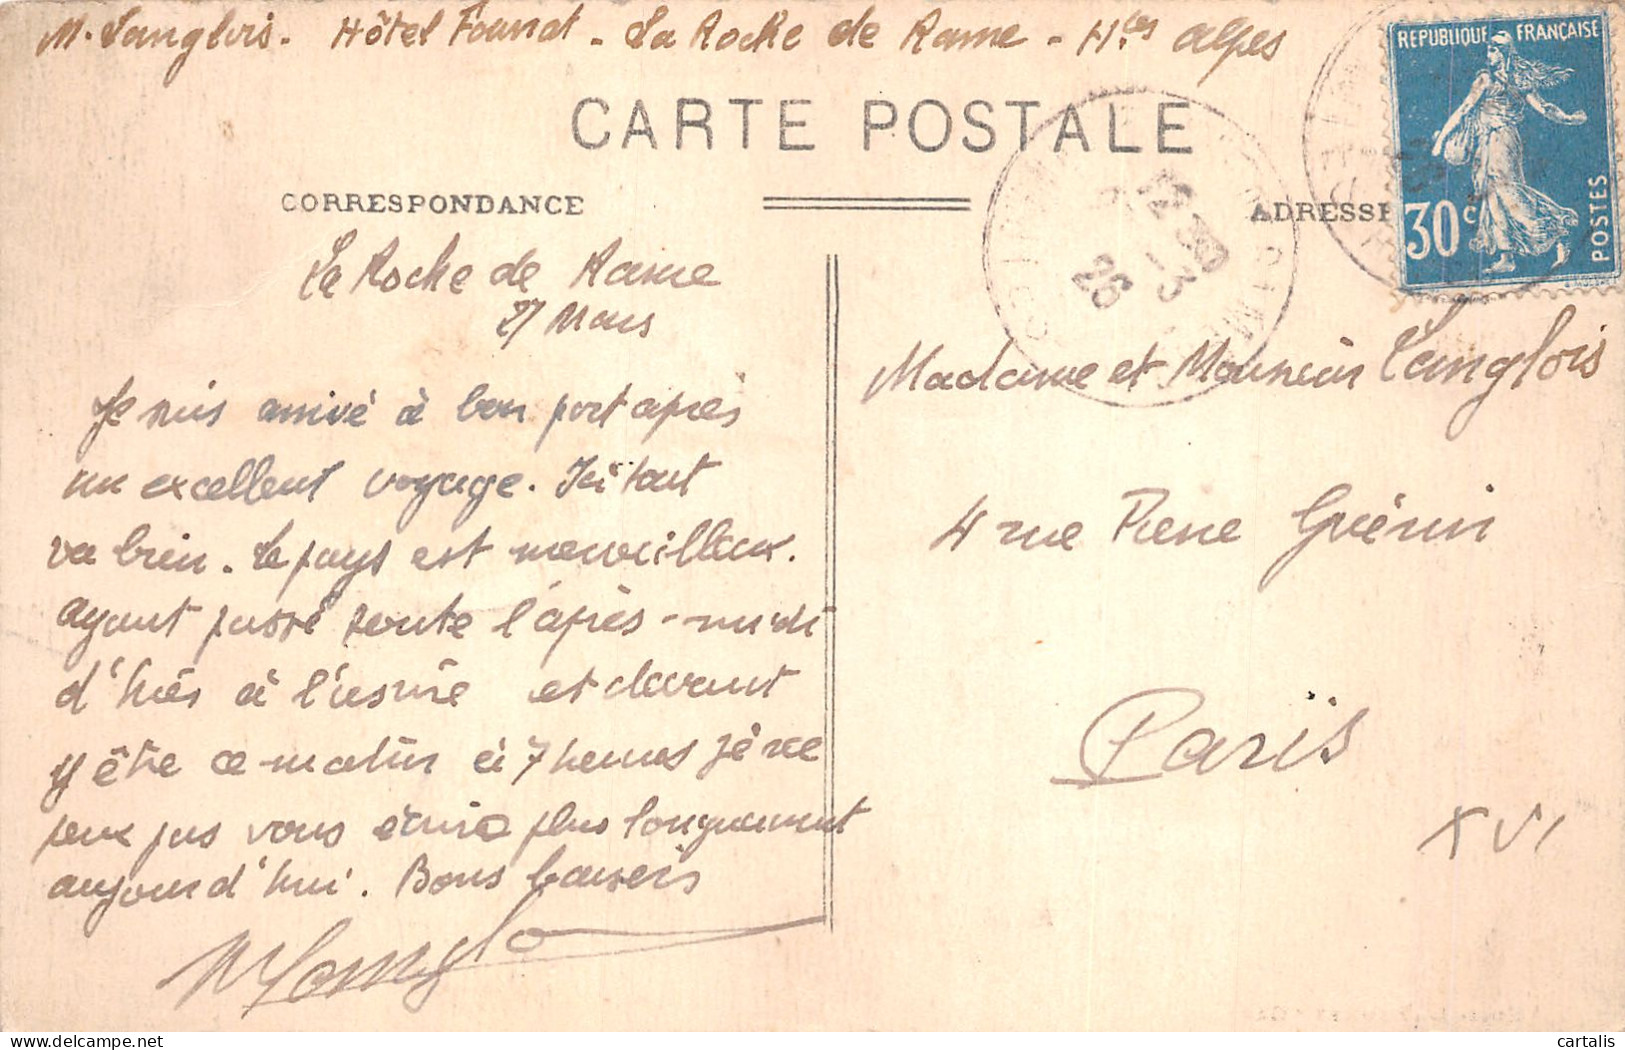 M. Langlois. Hôtel Fournat - La Roche de Rame - Htes Alpes
REPUBLIQUE FRANÇAISE
30c
POSTES
CARTE POSTALE
CORRESPONDANCE
ADRESSE
12 30
-3
26
La Roche de Rame
27 Mars
Je suis arrivé à bon port après
un excellent voyage. Ici tout
va bien. Le pays est merveilleux.
ayant passé toute l'après-midi
d'hier à l'usine et devant
y être ce matin à 7 heures je ne
peux pas vous écrire plus longuement
aujourd'hui. Bons baisers
M Langlo
Madame et Monsieur Langlois
4 rue Pierre Guérin
Paris
XVI
cartalis